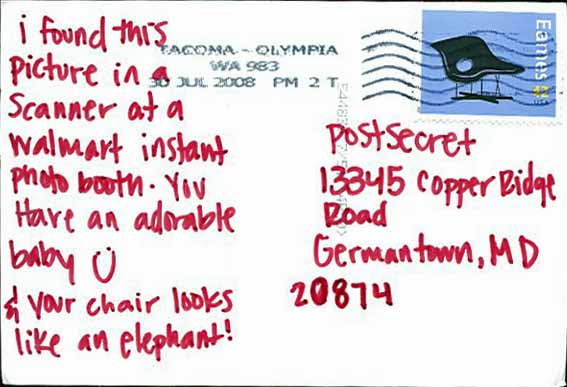 i found this
picture in a
scanner at a
walmart instant
photo booth. You
Have an adorable
baby
& your chair looks
like an elephant!
TACOMA - OLYMPIA
WA 983
30 JUL 2008 PM 2 T
Eames
PostSecret
13345 Copper Ridge
Road
Germantown, MD
20874